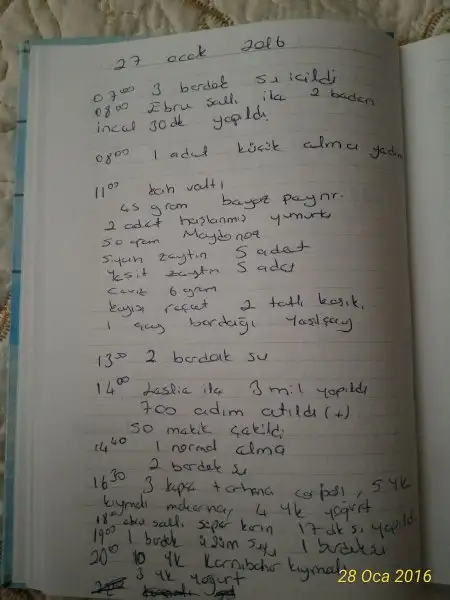 27 ocak 2016
07⁰⁰ 3 bardak su içildi
08⁰⁰ Ebru şallı ile 2 beden
incel 30 dk yapıldı.
08⁰⁰ 1 adet küçük elma yedim
11⁰⁰ kah valtı
45 gram beyaz peynr.
2 adet haşlanmış yumurta
50 gram Maydonoz
siyah zeytin 5 adet
Yeşil zeytin 5 adet
Ceviz 6 gram
kayısı reçel 2 tatlı kaşık.
1 çay bardağı Yeşilçay
13⁰⁰ 2 bardak su
14⁰⁰ Leslie ile 3 mil yapıldı
700 adım atıldı (+)
50 mekik çekildi
14⁴⁰ 1 normal elma
2 bardak su
16³⁰ 3 kepçe tarhana çorbası, 5 yk
kıymalı makarna, 4 yk yoğurt
18⁰⁰ ebru şallı süper karın 17 dk sı yapıldı
19⁰⁰ 1 bardak üzüm suyu 1 bardak su
20⁰⁰ 10 yk karnıbahar kıymalı
3 yk yoğurt
28 Oca 2016